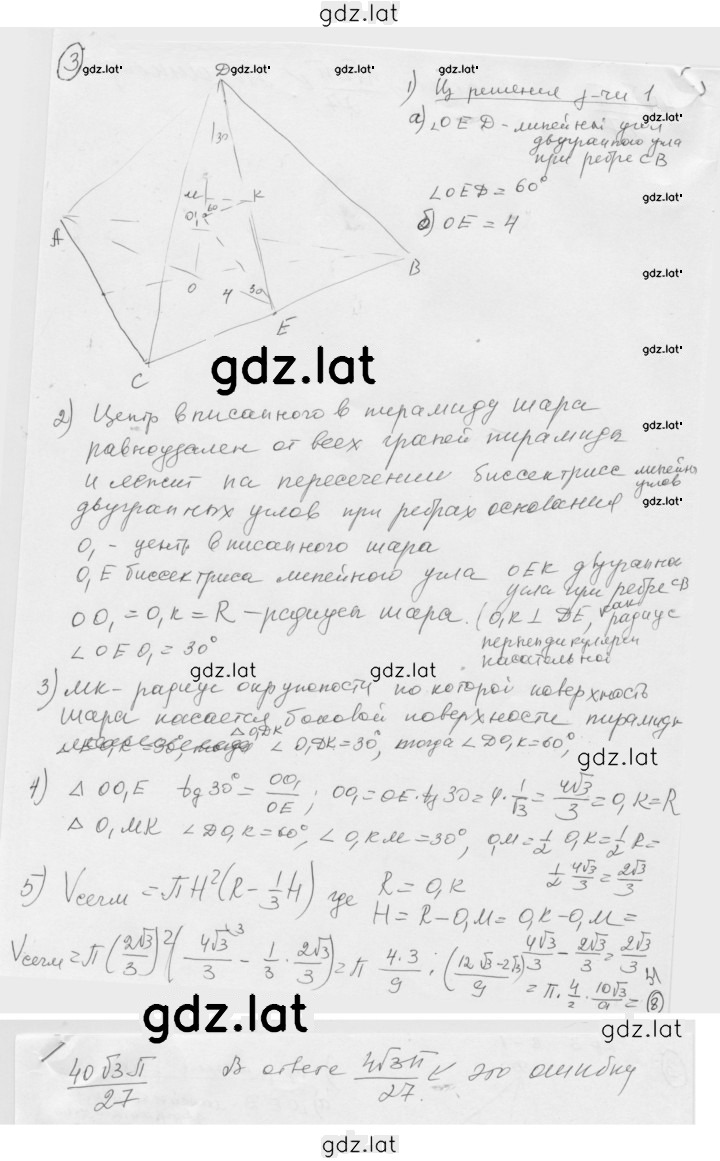 gdz.lat
3
gdz.lat
D gdz.lat
gdz.lat
gdz.lat
1) решения 1
gdz.lat
а) ∠OED - линейный угол
двугранного угла
при ребре CB
gdz.lat
30
∠OED = 60°
gdz.lat
M K
60
O₁
б) OE = 4
A
B
gdz.lat
O
4 30
E
gdz.lat
C
gdz.lat
gdz.lat
2) Центр вписанного в пирамиду шара
gdz.lat
равноудален от всех граней пирамиды
gdz.lat
и лежит на пересечении биссектрис линейных
углов
двугранных углов при ребрах основания
gdz.lat
O₁ - центр вписанного шара
O₁E биссектриса линейного угла OEK двугранного
угла при ребре CB
OO₁ = O₁K = R - радиусы шара. (O₁K ⊥ DE, как радиус
перпендикулярен
касательной
∠OEO₁ = 30°
gdz.lat
gdz.lat
3) MK - радиус окружности по которой поверхность
шара касается боковой поверхности пирамиды
△O₁DK
∠O₁DK = 30°, тогда ∠DO₁K = 60°,
gdz.lat
4) △OO₁E tg30° = OO₁/OE; OO₁ = OE·tg30 = 4·1/√3 = 4√3/3 = O₁K = R
△O₁MK ∠DO₁K = 60°, ∠O₁KM = 30°, O₁M = 1/2 O₁K = 1/2 R =
1/2 4√3/3 = 2√3/3
5) Vсегм = πH²(R - 1/3 H) где R = O₁K
H = R - O₁M = O₁K - O₁M =
4√3/3 - 2√3/3 = 2√3/3
Vсегм = π(2√3/3)²(4√3/3 \3 - 1/3 · 2√3/3) = π 4·3/9 · (12√3-2√3)/9
= π · 4/2 · 10√3/9 = 8
gdz.lat
40√3π/27 В ответе 4√3π/27. это ошибка
gdz.lat
gdz.lat